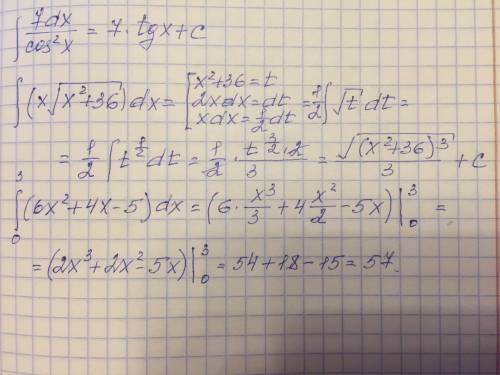 ∫ 7dx/cos²x = 7 · tgx + C
∫(x√(x²+36))dx = [x²+36 = t
2xdx = dt
xdx = 1/2 dt = 1/2 ∫√t dt =
= 1/2 ∫ t^(1/2) dt = 1/2 · (t^(3/2) · 2)/3 = √((x²+36)³)/3 + C
∫₀³ (6x²+4x-5)dx = (6 · x³/3 + 4 x²/2 - 5x)|₀³ =
= (2x³+2x²-5x)|₀³ = 54+18-15 = 57.